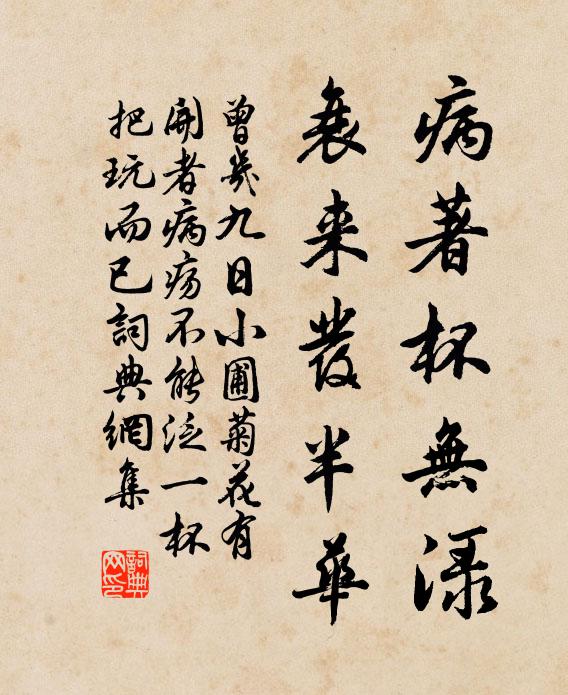 病著杯無淥
衰来髮半華
曾幾九日小圃菊花有
開者病瘍不能泛一杯
把玩而已詞典網集
詞典网印